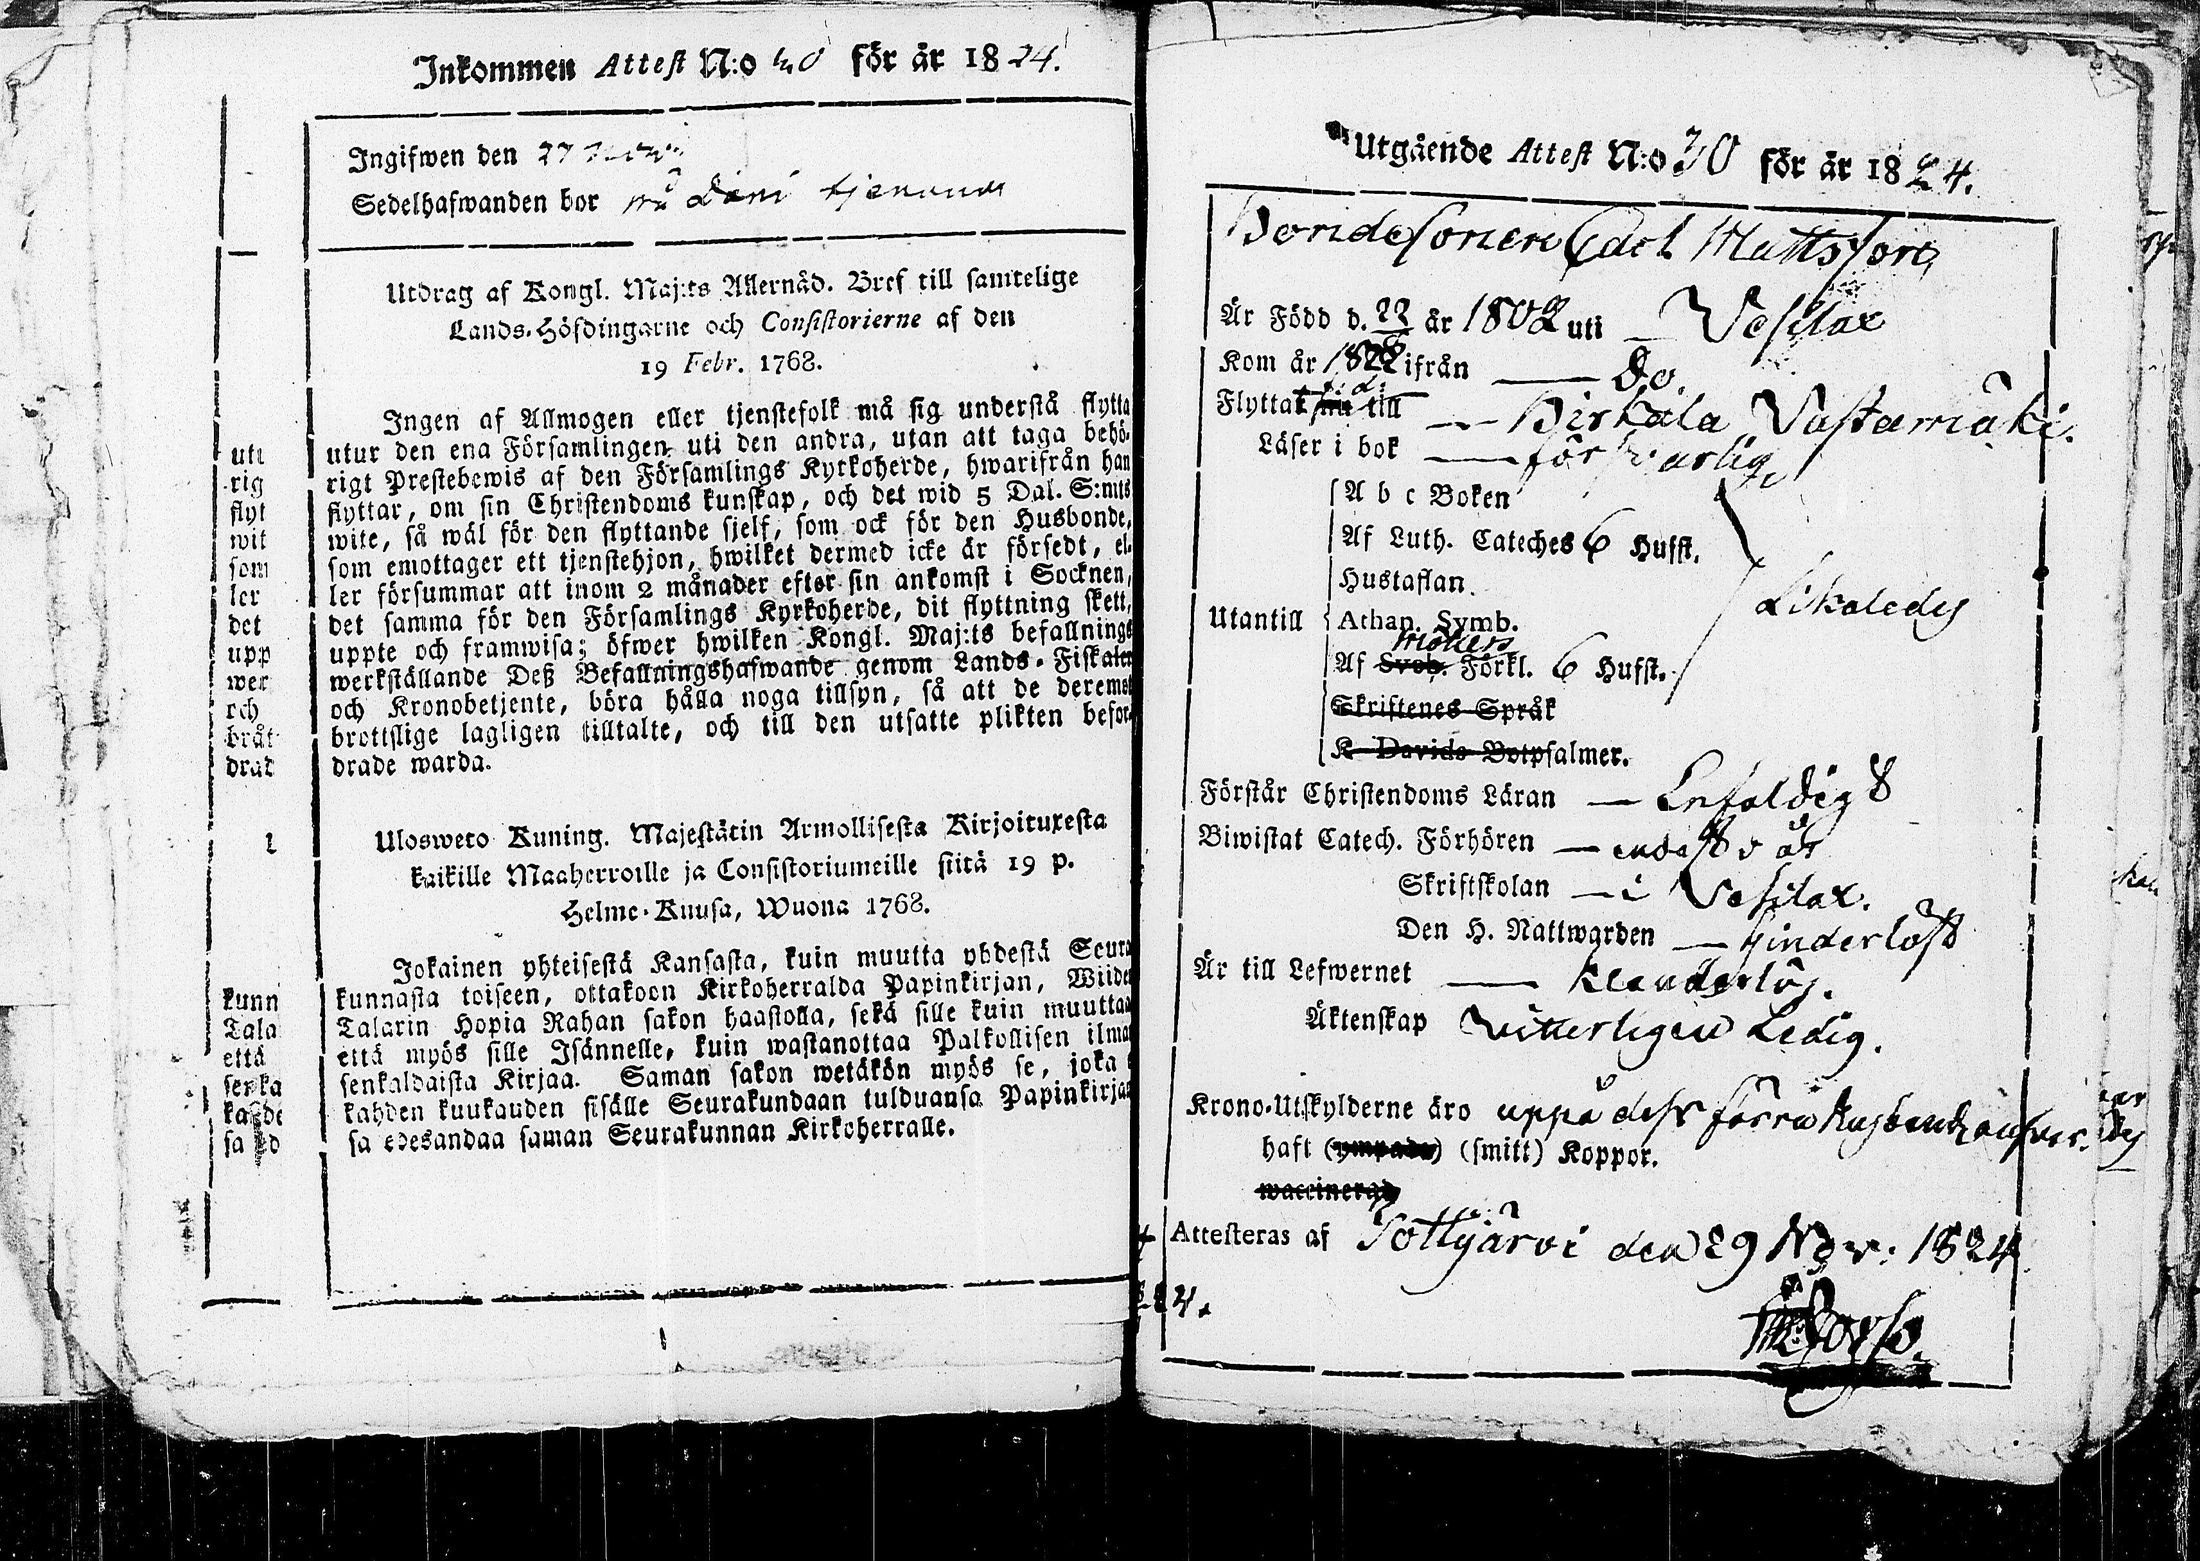 Inkommen Attest N:o för år 1824.
Ingifwen den 27
Sedelhafwanden bor
Utdrag af Kongl. Maj:ts Allernåd. Bref till samtelige
Lands-Höfdingarne och Consistorierne af den
19 Febr. 1768.
Ingen af Allmogen eller tjenstefolk må sig understå flytta
utur den ena Församlingen uti den andra, utan att taga behö-
rigt Prestebewis af den Församlings Kyrkoherde, hwarifrån han
flyttar, om sin Christendoms kunskap, och det wid 5 Dal. S:mts
wite, så wäl för den flyttande sjelf, som ock för den Husbonde,
som emottager ett tjenstehjon, hwilket dermed icke är försedt, el-
ler försummar att inom 2 månader efter sin ankomst i Socknen,
det samma för den Församlings Kyrkoherde, dit flyttning skett,
uppte och framwisa; öfwer hwilken Kongl. Maj:ts befallnings
werkställande Deß Befallningshafwande genom Lands-Fiskaler
och Kronobetjente, böra hålla noga tillsyn, så att de deremot
brottslige lagligen tilltalte, och till den utsatte plikten befor-
drade warda.
Ulosweto Kuning. Majestätin Armollisesta Kirjoituxesta
kaikille Maaherroille ja Consistoriumeille siitä 19 p.
Helme-Kuusa, Wuona 1768.
Jokainen yhteisestä Kansasta, kuin muutta yhdestä Seura
kunnasta toiseen, ottakoon Kirkoherralda Papinkirjan, Wiiden
Talarin Hopia Rahan sakon haastolla, sekä sille kuin muuttaa
että myös sille Isännelle, kuin wastanottaa Palkollisen ilman
senkaldaista Kirjaa. Saman sakon wetäkön myös se, joka
kahden kuukauden sisälle Seurakundaan tulduansa Papinkirjan
sa edesandaa saman Seurakunnan Kirkoherralle.
Utgående Attest N:o 30 för år 1824.
Bondesonen Carl Mattsson,
Är Född d. 22 år 1802 uti Vesilax
Kom år 1822 ifrån Do.
Flyttat till Birkala Vastamäki.
Läser i bok försvarlig
A b c Boken
Af Luth. Cateches 6 Hufst.
Hustaflan.
Likaledes
Utantill Athan. Symb.
Möllers
Af Sveb. Förkl. 6 Hufst.
Skriftenes Språk
K Davids Botpsalmer.
Förstår Christendoms Läran Enfaldigt
Biwistat Catech. Förhören endast v år
Skriftskolan i Vesilax.
Den H. Nattwarden hinderlöst
Är till Lefwernet klanderlös.
Äktenskap Vitterligen Ledig.
Krono-Utskylderne äro uppå dess förra husbondz answar.
haft (ympade) (smitt) Koppor.
waccinerad
Attesteras af Tottijärvi den 29 Nov: 1824